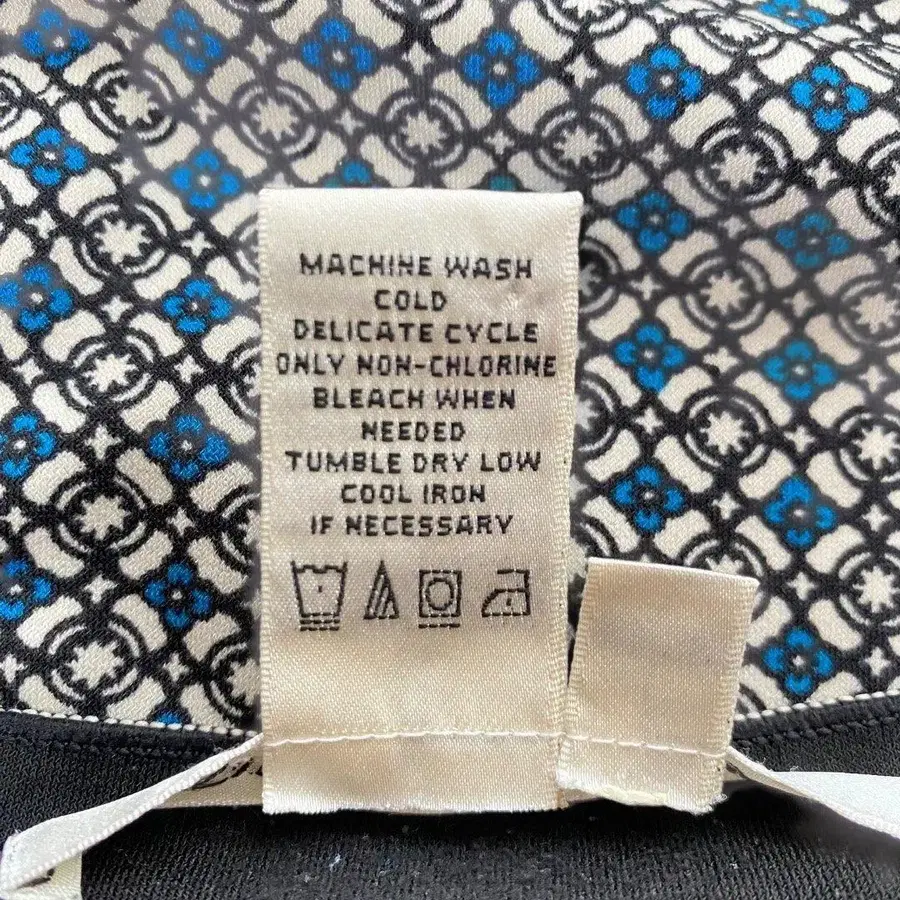 MACHINE WASH
COLD
DELICATE CYCLE
ONLY NON-CHLORINE
BLEACH WHEN
NEEDED
TUMBLE DRY LOW
COOL IRON
IF NECESSARY